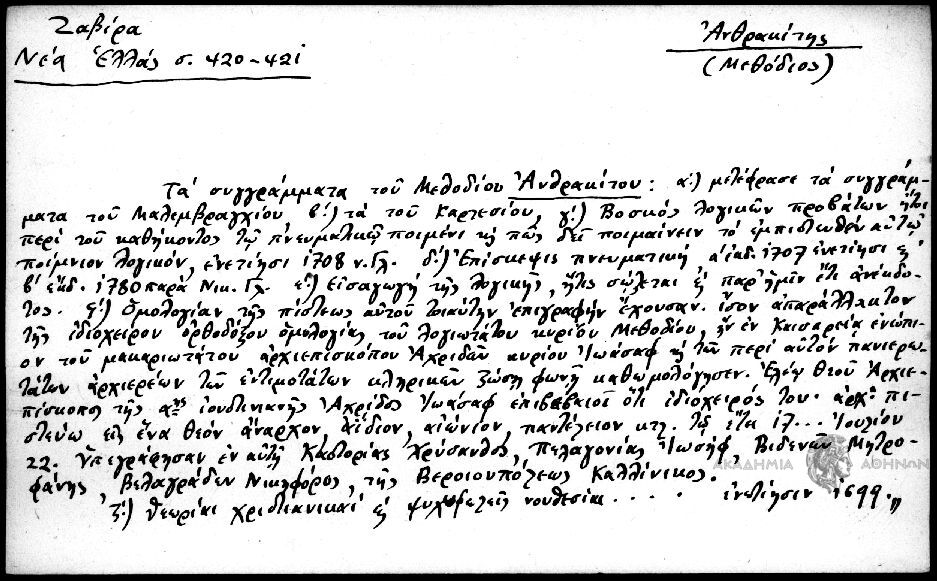 Ζαβίρα
Νέα Ἑλλάς σ. 420-421
Ἀνθρακίτης
(Μεθόδιος)
Τά συγγράμματα τοῦ Μεθοδίου Ἀνθρακίτου: α΄.) μετέφρασε τά συγγράμ-
ματα τοῦ Μαλεμβραγχίου, β΄.) τά τοῦ Καρτεσίου, γ΄.) Βοσκός λογικῶν προβάτων ἤτοι
περί τοῦ καθήκοντος τῷ πνευματικῷ ποιμένι καί πῶς δεῖ ποιμαίνειν τό ἐμπιστωθέν αὐτῷ
ποίμνιον λογικόν, ἐνετίησι 1708 ν. Γλ. δ΄.) Ἐπίσκεψις πνευματική α΄ ἐκδ. 1707 ἐνετίησι καί
β΄ ἐκδ. 1780 παρά Νικ. Γλ. ε΄.) Εἰσαγωγή τῆς λογικῆς, ἥτις σώζεται καί παρ' ἡμῖν ἔτι ἀνέκδο-
τος. ς΄.) Ὁμολογίαν τῆς πίστεως αὐτοῦ τοιαύτην ἐπιγραφήν ἔχουσαν. ἴσον ἀπαράλλακτον
τῆς ἰδιοχείρου ὀρθοδόξου ὁμολογίας τοῦ λογιωτάτου κυρίου Μεθοδίου, ἥν ἐν Καισαρείᾳ ἐνώπι-
ον τοῦ μακαριωτάτου ἀρχιεπισκόπου Ἀχριδῶν κυρίου Ἰωάσαφ καί τῶν περί αὐτόν πανιερω-
τάτων ἀρχιερέων τῶν ἐντιμοτάτων κληρικῶν ζώσῃ φωνῇ καθωμολόγησεν. Ἐλέῳ Θεοῦ Ἀρχιε-
πίσκοπος τῆς αης ἰουστινιανῆς Ἀχρίδος Ἰωάσαφ ἐπιβεβαιοῖ ὅτι ἰδιοχειρός του· ἀρχ. πι-
στεύω εἰς ἕνα θεόν ἄναρχον ἀΐδιον, αἰώνιον, παντέλειον κτλ. τῷ ἔτει 17... Ἰουλίου
22. Ὑπεγράφησαν ἐν αὐτῇ Καστορίας Χρύσανθος, Πελαγονίας Ἰωσήφ, Βιδενῶν Μητρο-
φάνης, Βελαγράδων Νικηφόρος, τῆς Βεροιουπόλεως Καλλίνικος.
ζ΄.) Θεωρίαι χριστιανικαί καί ψυχωφελεῖς νουθεσίαι .... ἐνετίησιν 1699.„
ΑΚΑΔΗΜΙΑ ΑΘΗΝΩΝ